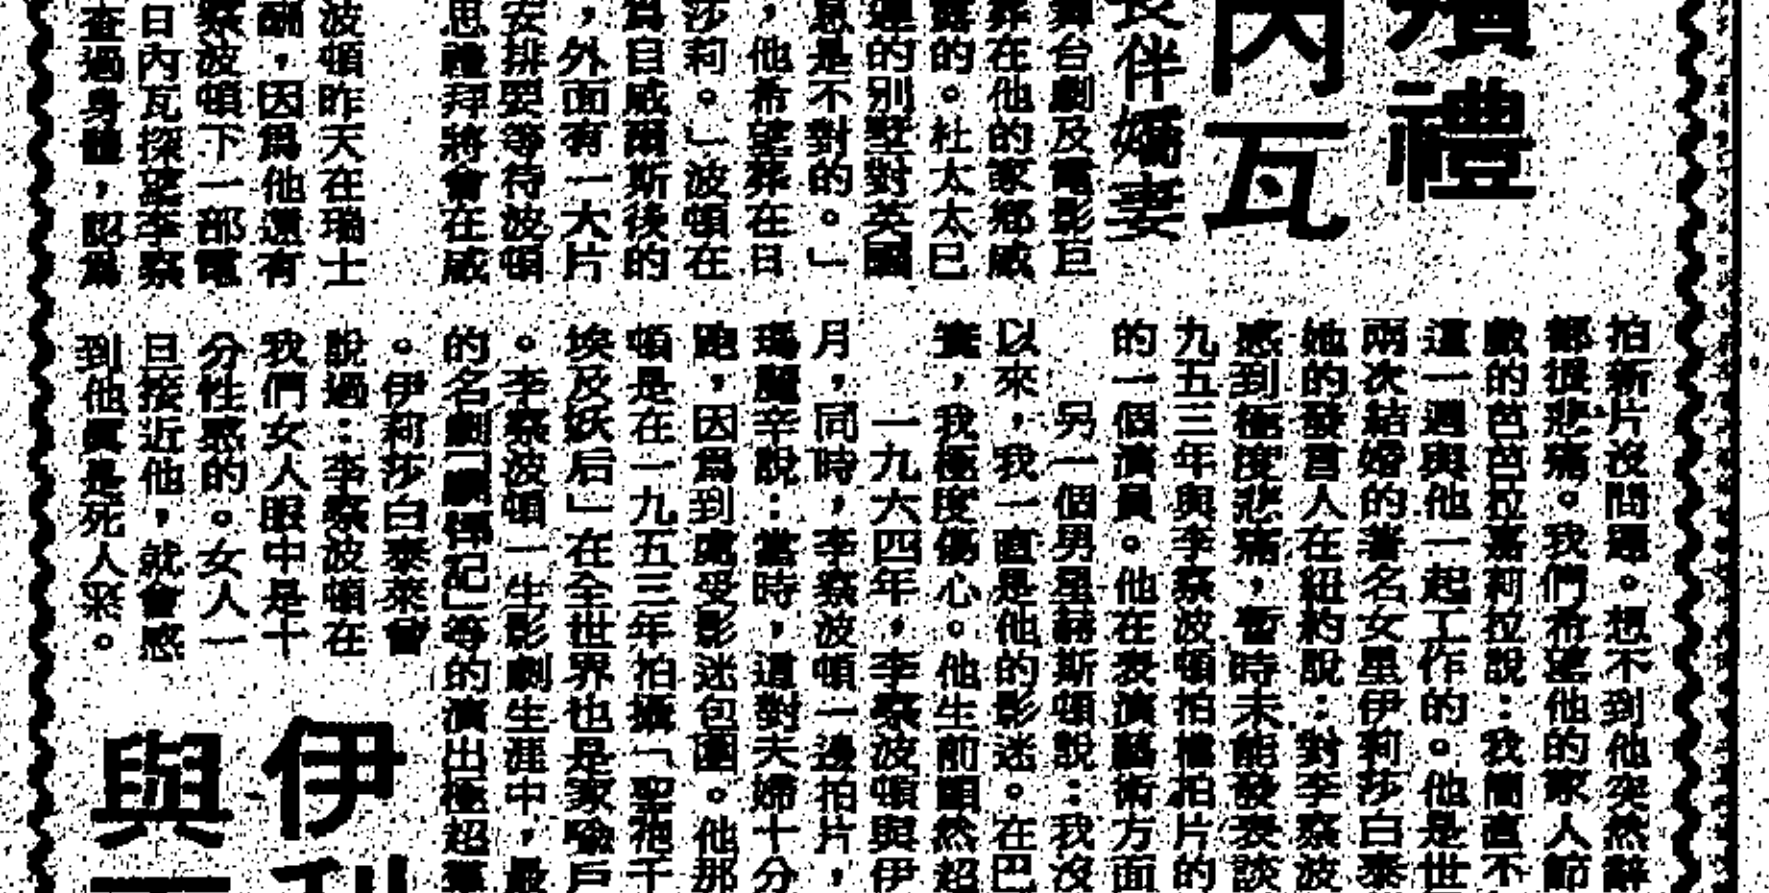 禮
內瓦
伴嬌妻
舞台劇及電影巨
葬在他的家鄉威
露的。杜太太已
理的別墅對英國
息是不對的。」
，他希望葬在日
莎莉。」波頓在
爲自威爾斯後的
，外面有一大片
安排要等待波頓
思禮拜將會在威
波頓昨天在瑞士
酬，因爲他還有
察波頓下一部電
日內瓦探望李察
查過身體，認爲
拍新片沒問題。想不到他突然辭
都很悲痛。我們希望他的家人節
戲的芭芭拉嘉莉拉說：我簡直不
這一週與他一起工作的。他是世
兩次結婚的著名女星伊莉莎白泰
她的發言人在紐約說：對李察波
感到極度悲痛，暫時未能發表談
九五三年與李察波頓拍檔拍片的
的一個演員。他在表演藝術方面
另一個男星赫斯頓說：我沒
以來，我一直是他的影迷。在巴
，我極度傷心。他生前顯然超
一九六四年，李察波頓與伊
月，同時，李察波頓一邊拍片，
瑪麗辛說：當時，這對夫婦十分
跑，因爲到處受影迷包圍。他那
頓是在一九五三年拍攝「聖袍千
埃及妖后」在全世界也是家喻戶
。李察波頓一生影劇生涯中，最
的名劇「 記」等的演出極超
。伊莉莎白泰萊曾
說過：李察波頓在
我們女人眼中是十
分性感的。女人一
旦接近他，就會感
到他眞是死人冧。
伊
與